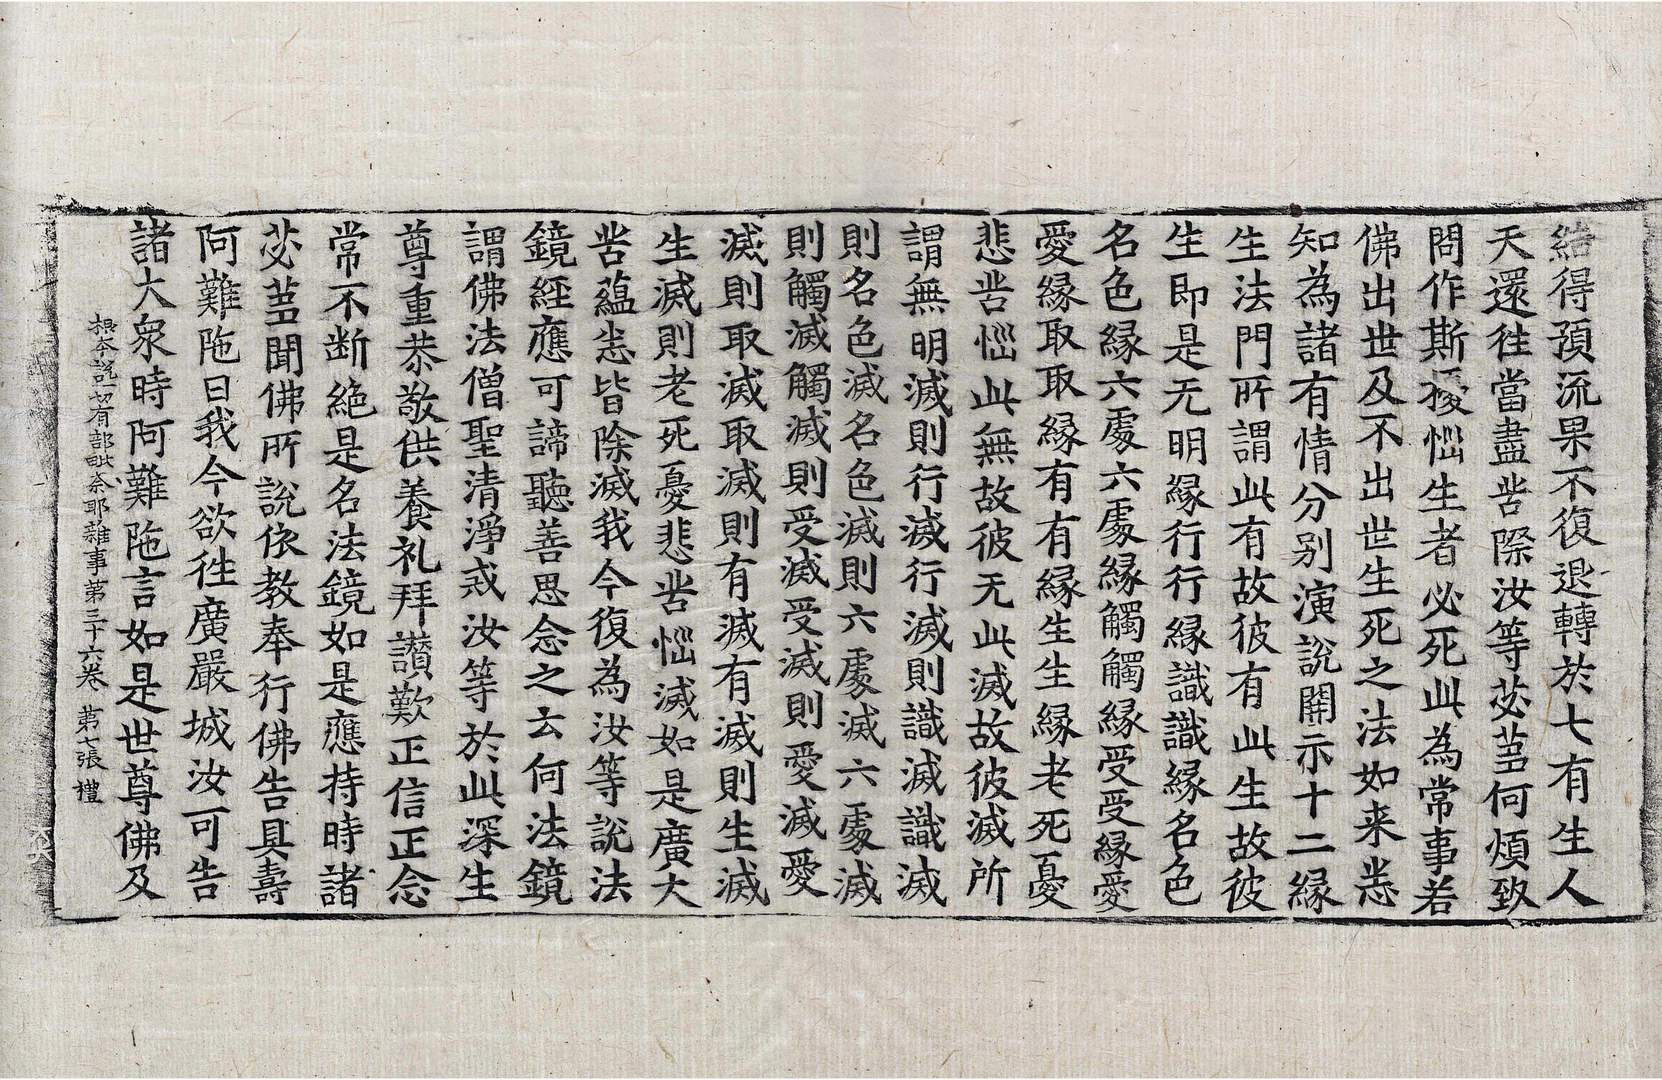 結得預流果不復退轉於七有生人
天還徃當盡苦際汝等苾蒭何煩致
問作斯擾惱生者必死此為常事若
佛出世及不出世生死之法如来悉
知為諸有情分別演說開示十二縁
生法門所謂此有故彼有此生故彼
生即是无明縁行行縁識識縁名色
名色縁六處六處縁觸觸縁受受縁愛
愛縁取取縁有有縁生生縁老死憂
悲苦惱此無故彼无此滅故彼滅所
謂無明滅則行滅行滅則識滅識滅
則名色滅名色滅則六處滅六處滅
則觸滅觸滅則受滅受滅則愛滅愛
滅則取滅取滅則有滅有滅則生滅
生滅則老死憂悲苦惱滅如是廣大
苦藴悉皆除滅我今復為汝等說法
鏡經應可諦聽善思念之云何法鏡
謂佛法僧聖清淨戒汝等於此深生
尊重恭敬供養礼拜讃歎正信正念
常不断絶是名法鏡如是應持時諸
苾蒭聞佛所說依教奉行佛告具壽
阿難陁曰我今欲徃廣嚴城汝可告
諸大衆時阿難陁言如是世尊佛及
根本說一切有部毗奈耶雜事第三十六卷 第七張 禮